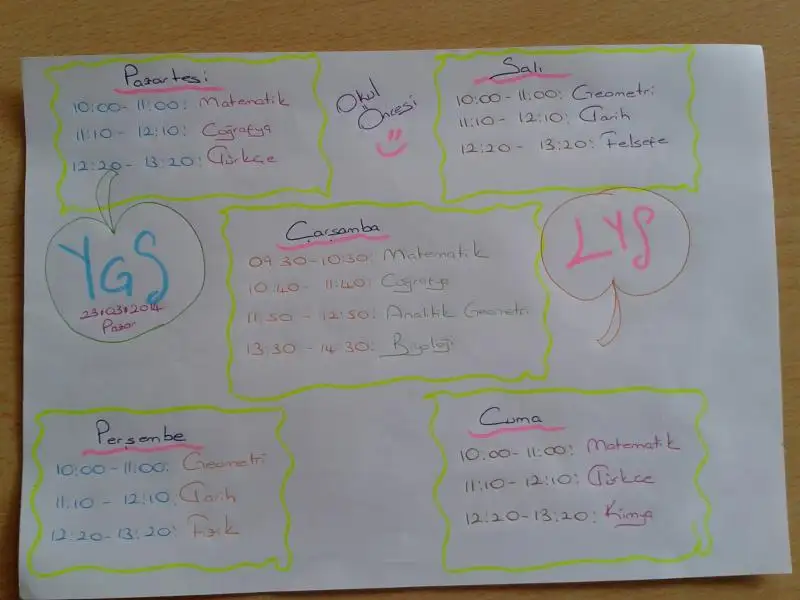 Pazartesi
10:00-11:00: Matematik
11:10 - 12:10: Coğrafya
12:20 - 13:20: Türkçe
Okul
Öncesi
Salı
10:00-11:00: Geometri
11:10 - 12:10: Tarih
12:20 - 13:20: Felsefe
YGS
23.03.2014
Pazar
Çarşamba
09.30-10:30: Matematik
10:40 - 11:40: Coğrafya
11:50 - 12:50: Analitik Geometri
13:30 - 14:30: Biyoloji
LYS
Perşembe
10:00-11:00: Geometri
11:10 - 12:10: Tarih
12:20-13:20: Fizik
Cuma
10:00-11:00: Matematik
11:10 - 12:10: Türkçe
12:20-13:20: Kimya